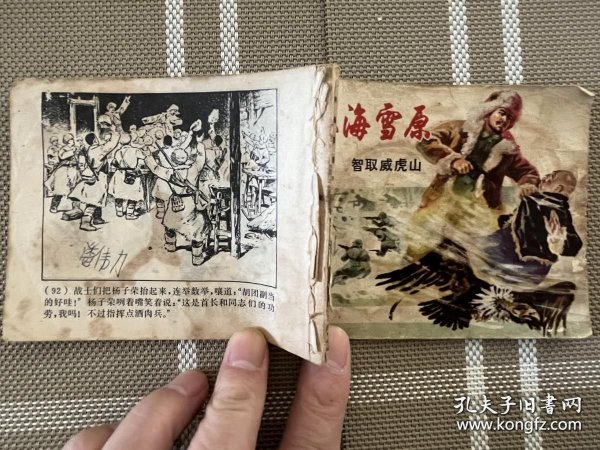 （92）战士们把杨子荣抬起来，连举数举，嚷道：“胡团副当
的好哇！”杨子荣咧着嘴笑着说：“这是首长和同志们的功
劳，我吗！不过指挥点酒肉兵。”
海雪原
智取威虎山
孔夫子旧书网
www.kongfz.com